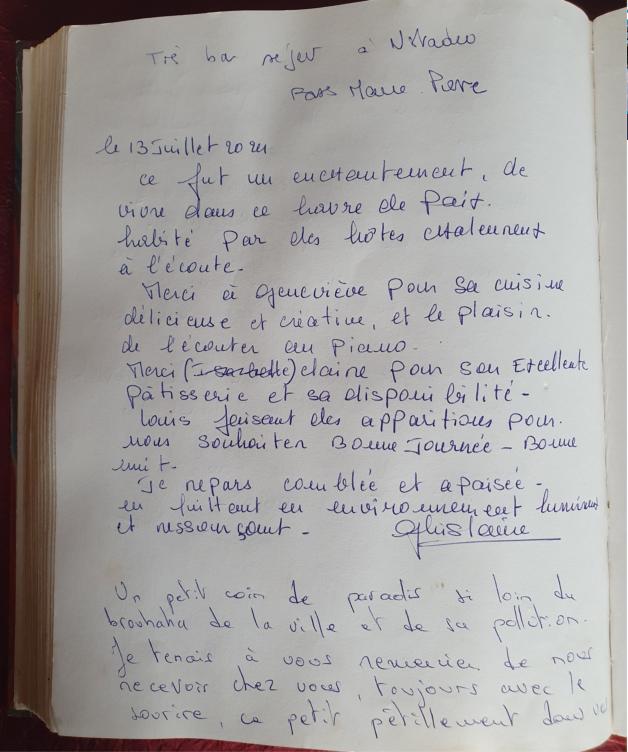 Trè bon séjour à
Marie Pierre
le 13 Juillet 2021
ce fut un enchantement, de
vivre dans ce havre de Paix.
habité par des hôtes chaleureux
à l'écoute.
Merci à Geneviève pour sa cuisine
délicieuse et créative, et le plaisir.
de l'écouter au Piano.
Merci (Isabelle) claire pour son Excellente
pâtisserie et sa disponibilité -
Louis faisant des apparitions pour.
nous souhaiter Bonne Journée - Bonne
nuit.
Je repars comblée et apaisée -
en environnement lumineux
et ressourçant - Ghislaine
Un petit coin de paradis si loin du
brouhaha de la ville et de sa pollution.
Je tenais à vous remercier de nous
recevoir chez vous, toujours avec le
sourire, ce petit pétillement dans